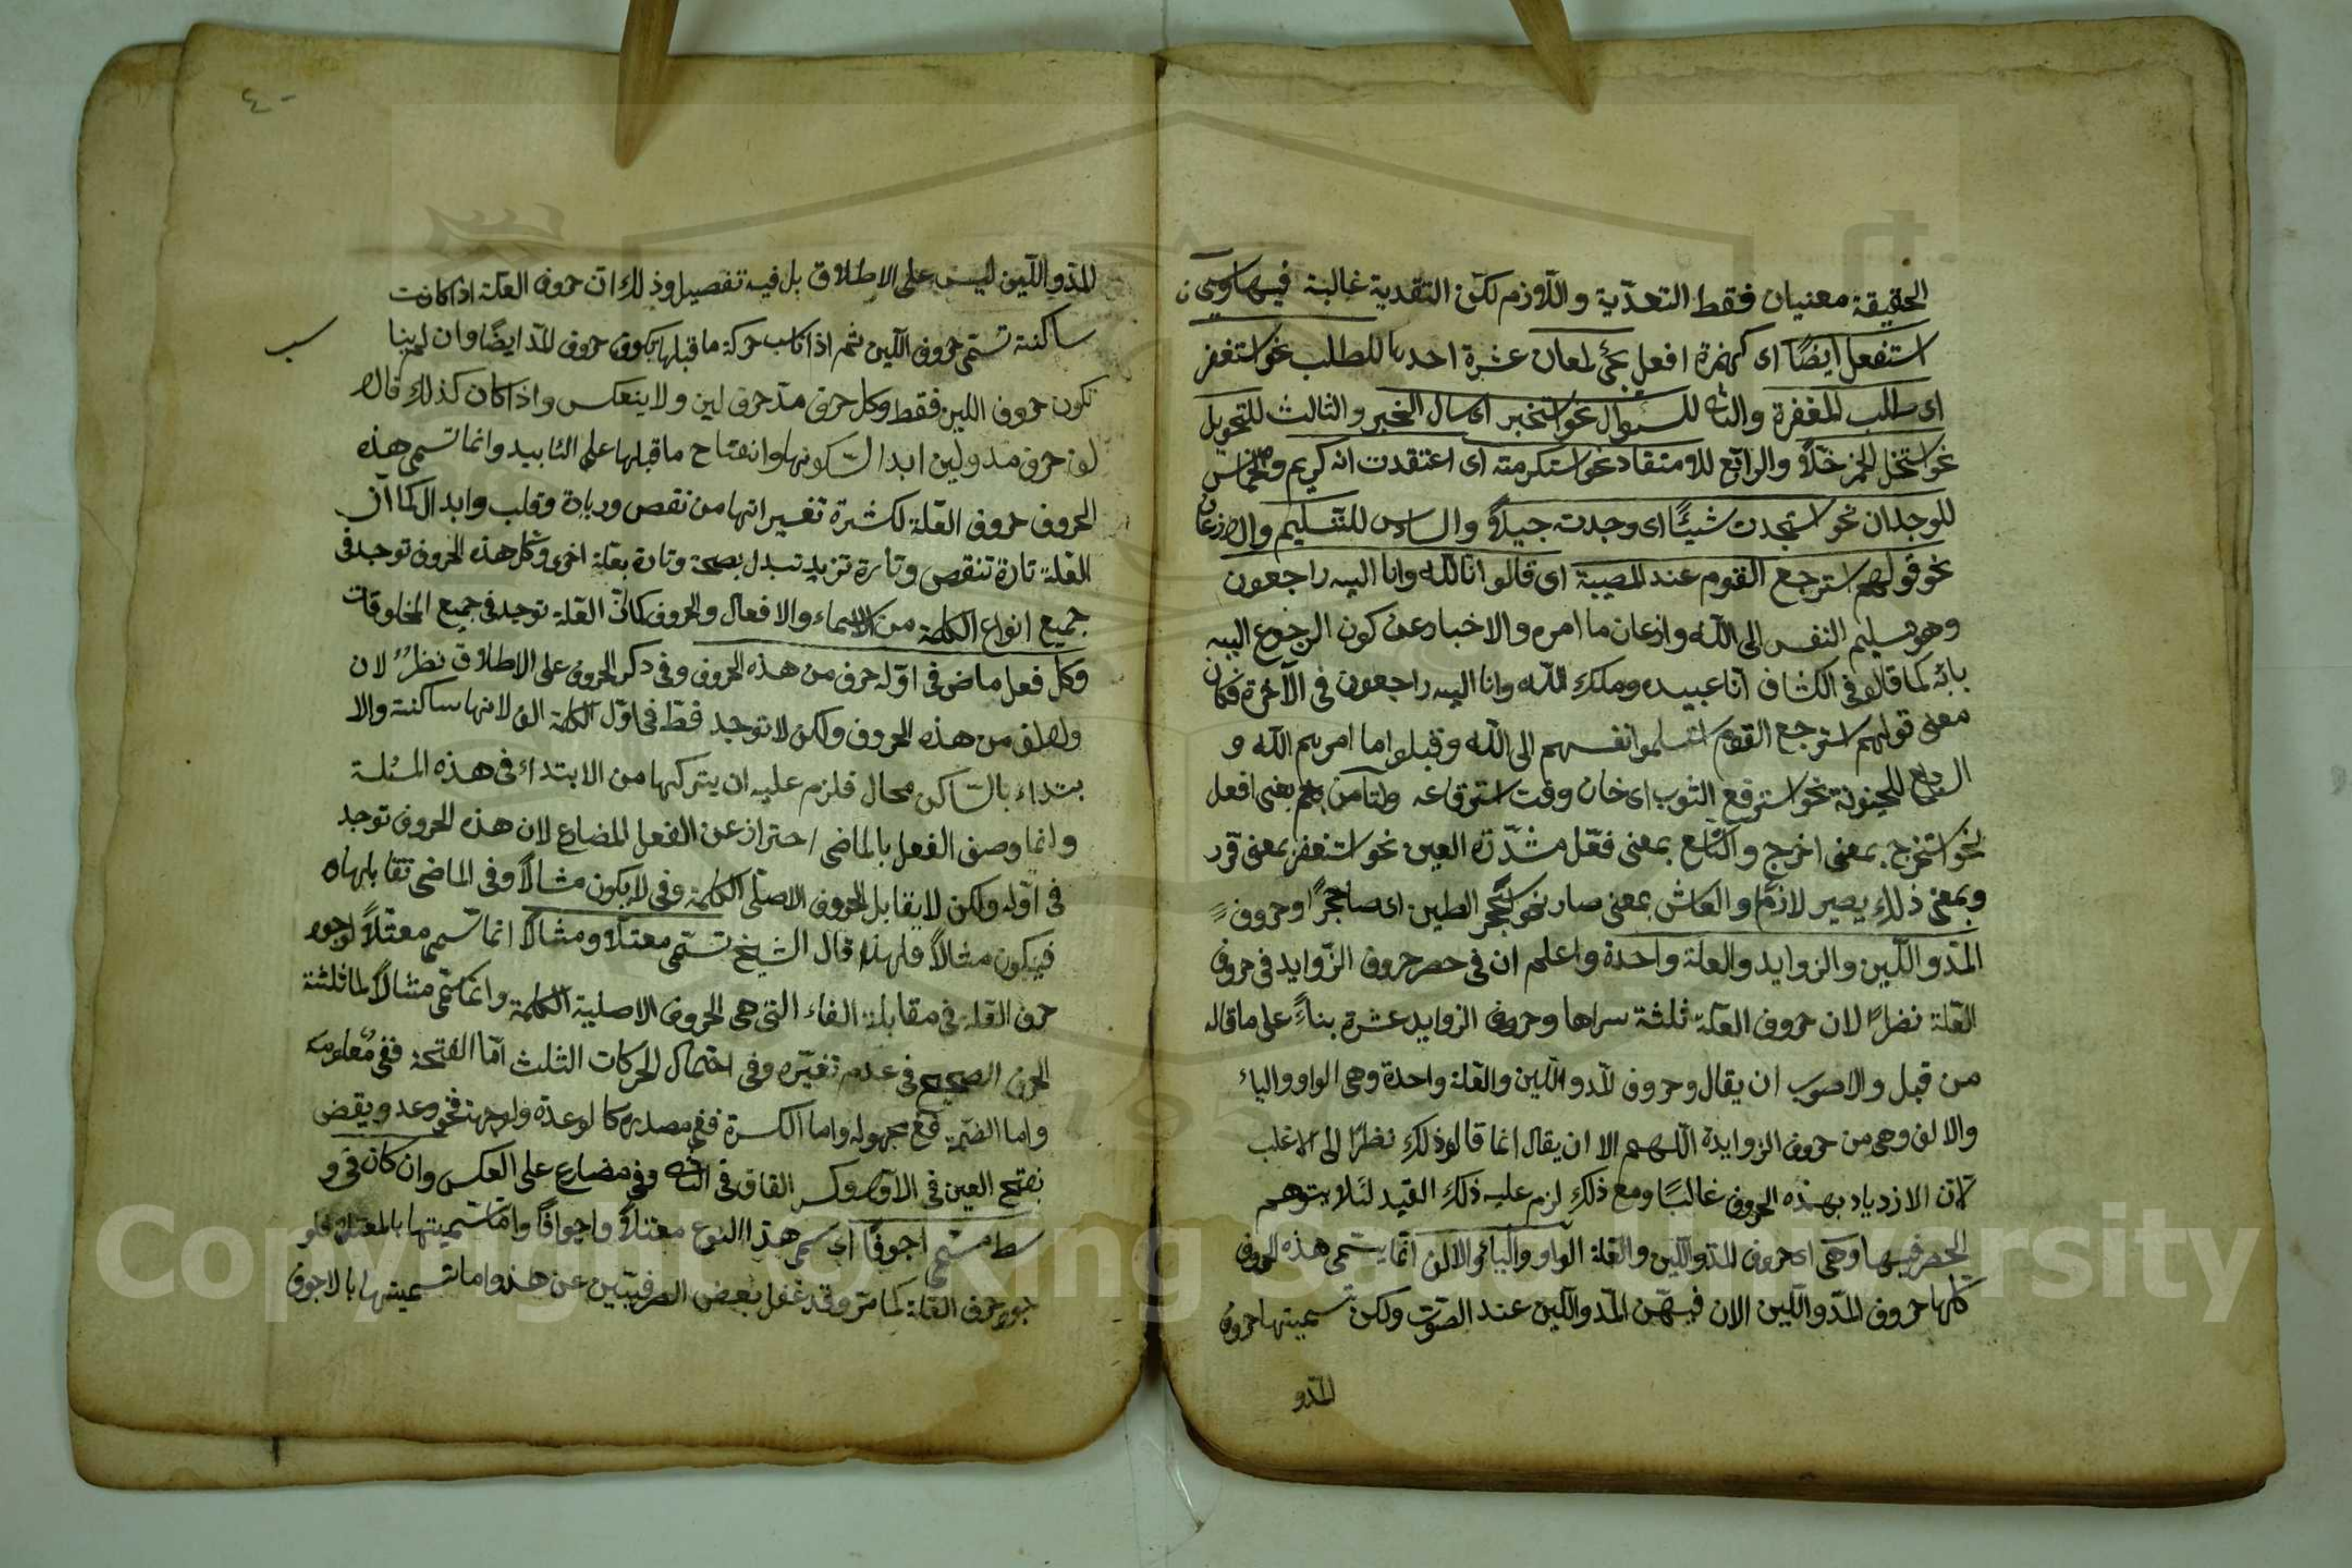 الحقيقة معنيان فقط التعدّية واللّازم لكنّ التعدية غالبة فيها وسين
استفعل ايضًا اى كهمزة افعل يجئ لمعان عشرة احدها للطلب نحو استغفر
اى طلب المغفرة والثانى للسؤال نحو استخبر اى سال الخبر والثالث للتحويل
نحو استخل الخمر خلّاً والرابع للاعتقاد نحو استكرمته اى اعتقدت انه كريم والخامس
للوجدان نحو استجدت شيئًا اى وجدته جيدًا والسادس للتسليم والاذعان
نحو قولهم استرجع القوم عند المصيبة اى قالوا انا لله وانا اليه راجعون
وهو تسليم النفس الى الله واذعان ما امره والاخبار عن كون الرجوع اليه
بانه كما قال فى الكشاف انا عبيده وملك الله وانا اليه راجعون فى الآخرة فكان
معنى قولهم استرجع القوم اسلموا انفسهم الى الله وقبلوا ما امرهم الله و
السابع للحينونة نحو استرقع الثوب اى حان وقت استرقاعه والثامن بمعنى افعل
نحو استخرج بمعنى اخرج والتاسع بمعنى فعّل مشدّدة العين نحو استغفر بمعنى قرر
وبمعنى ذلك يصير لازمًا والعاشر بمعنى صار نحو استحجر الطين اى صار حجرًا وحروف
المدّ واللّين والزوايد والعلة واحدة واعلم ان فى حصر حروف الزوايد فى حروف
العلّة نظرًا لان حروف العلّة ثلثة سراها وحروف الزوايد عشرة بناءً على ما قاله
من قبل والاصوب ان يقال وحروف المدّ واللّين والعلة واحدة وهى الواو والياء
والالف وهى من حروف الزوايدة اللهم الا ان يقال انما قالوا ذلك نظرًا الى الاغلب
لانّ الازدياد بهذه الحروف غالبًا ومع ذلك لزم عليه ذلك القيد لئلا يتوهم
الحصر فيها وهى اى حروف المدّ واللّين والعلة الواو والياء والالف انّما يسمّى هذه الحروف
كلها حروف المدّ واللّين الان فيهنّ المدّ واللّين عند الصوت ولكن تسميتها حروف
المدّ و
٤٠
المدّ واللّين ليس على الاطلاق بل فيه تفصيل وذلك انّ حروف العلّة اذا كانت
ساكنة تسمّى حروف اللّين ثم اذا ناسب حركة ما قبلها يكون حروف المدّ ايضًا وان لم يناسب
تكون حروف اللين فقط وكل حرف مدّ حرف لين ولا ينعكس واذا كان كذلك قالالف
حرف مد ولين ابدا لسكونها وانفتاح ما قبلها على التابيد وانما تسمى هذه
الحروف حروف العلّة لكثرة تغييراتها من نقص وزيادة وقلب وابدال كما انّ
العلّة تارة تنقص وتارة تزيد تبدل بصحة وتارة بعلة اخرى وكل هذه الحروف توجد فى
جميع انواع الكلمة من الاسماء والافعال والحروف كما انّ العلّة توجد فى جميع المخلوقات
وكل فعل ماض فى اوّله حرف من هذه الحروف وفى ذكر الحروف على الاطلاق نظر لان
والالف من هذه الحروف ولكن لا توجد قطّ فى اوّل الكلمة الف لانها ساكنة والا
بتداء بالساكن محال فلزم عليه ان يتركها من الابتداء فى هذه المسئلة
وانما وصف الفعل بالماضى احتراز عن الفعل المضارع لان هذه الحروف توجد
فى اوّله ولكن لا يقابل الحروف الاصلى الكلمة وفى لا يكون مثالاً وفى الماضى تقابلها
فيكون مثالاً فلهذا قال الشيخ تسمّى معتلًا ومثالًا انما تسمى معتلًا لوجود
حرف العلة فى مقابلة الفاء التى هى الحروف الاصلية الكلمة وانما تسمّى مثالًا لمماثلته
الحرف الصحيح فى عدم تغيّره وفى احتمال الحركات الثلث امّا الفتحة ففى معلومه
واما الضمّة فمع مجهوله واما الكسرة ففى مصدره كالوعدة ولوجهة نحو وعد ويقض
بفتح العين فى الاوّل وكسر القاف فى الثانى وفى مضارع على العكس وان كان فى و
سط تسمّى اجوفًا اى سمى هذا النوع معتلًا واجوافًا وامّا تسميتها بالمعتل فلو
جود حرف العلة كما مرّ وقد غفل بعض الصرفيّين عن هذا واما تسميتها بالاجوف